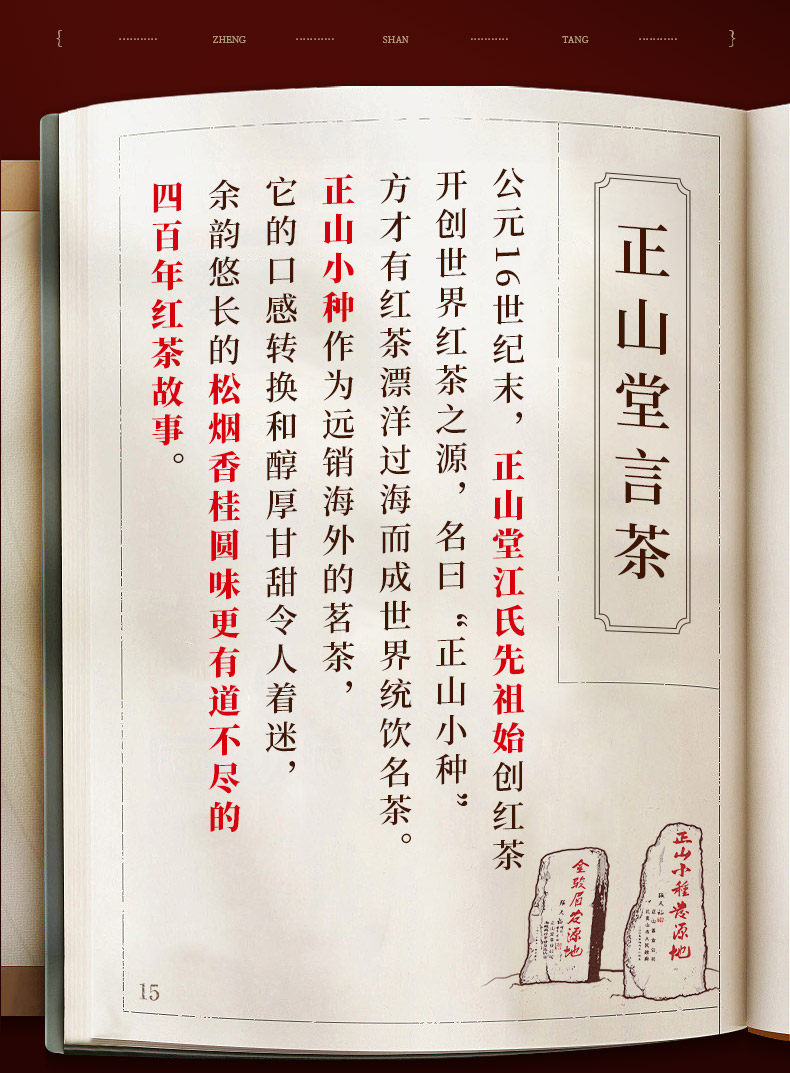 { ZHENG SHAN TANG }
正山堂言茶
公元16世纪末，正山堂江氏先祖始创红茶
开创世界红茶之源，名曰“正山小种”
方才有红茶漂洋过海而成世界统饮名茶。
正山小种作为远销海外的茗茶，
它的口感转换和醇厚甘甜令人着迷，
余韵悠长的松烟香桂圆味更有道不尽的
四百年红茶故事。
正山小種發源地
金骏眉发源地
15